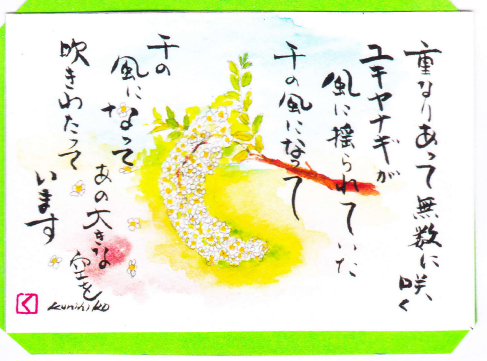 重なりあって無数に咲く
ユキヤナギが
風に揺られていた
千の風になって
千の
風になって
あの大きな
空を
吹きわたって
います
く
kunihiko